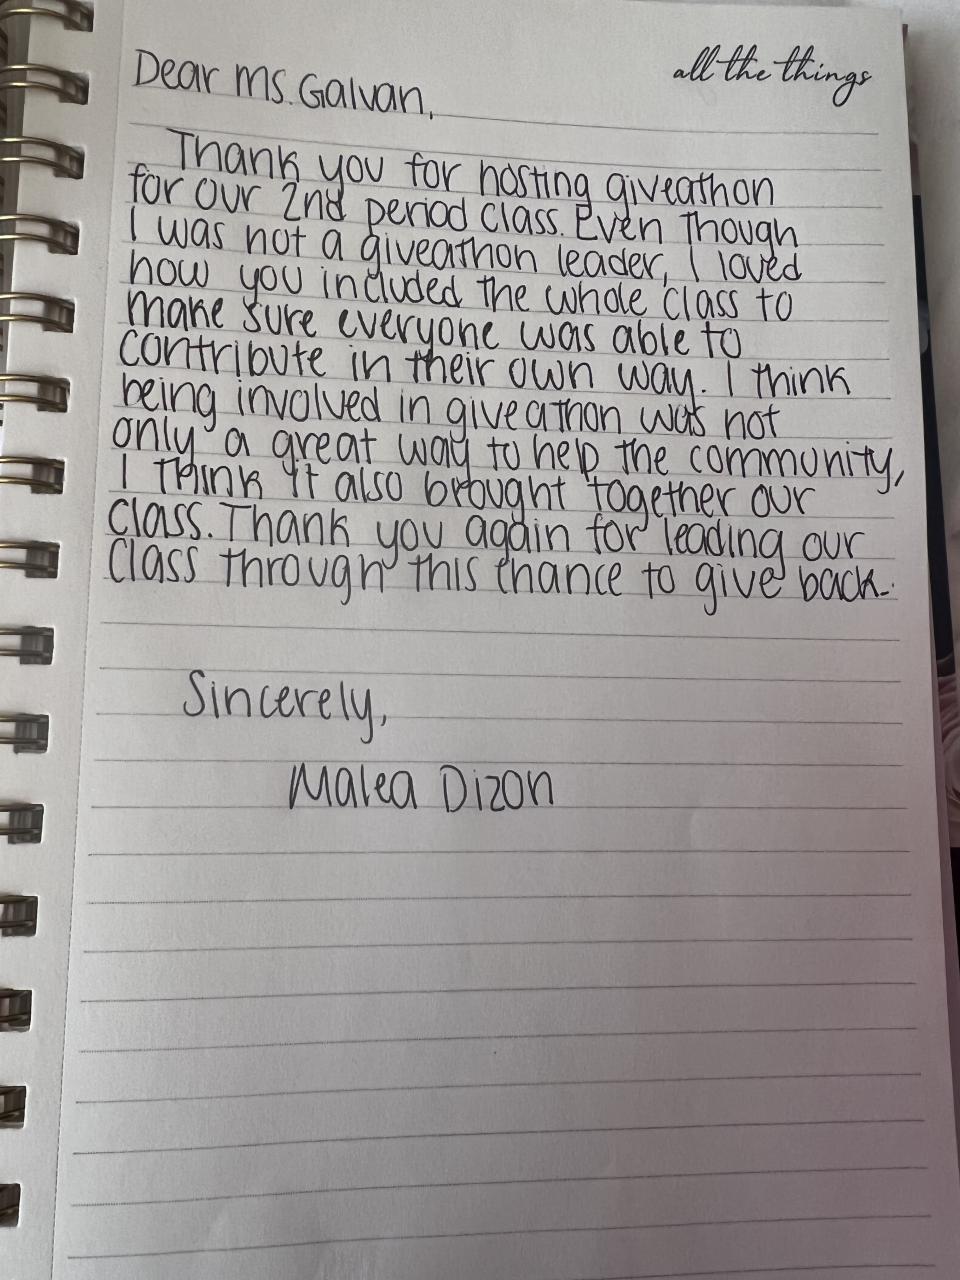 all the things
Dear Ms. Galvan,
Thank you for hosting giveathon
for our 2nd period class. Even though
I was not a giveathon leader, I loved
how you included the whole class to
make sure everyone was able to
contribute in their own way. I think
being involved in giveathon was not
only a great way to help the community,
I think it also brought together our
class. Thank you again for leading our
class through this chance to give back.
Sincerely,
Malea Dizon